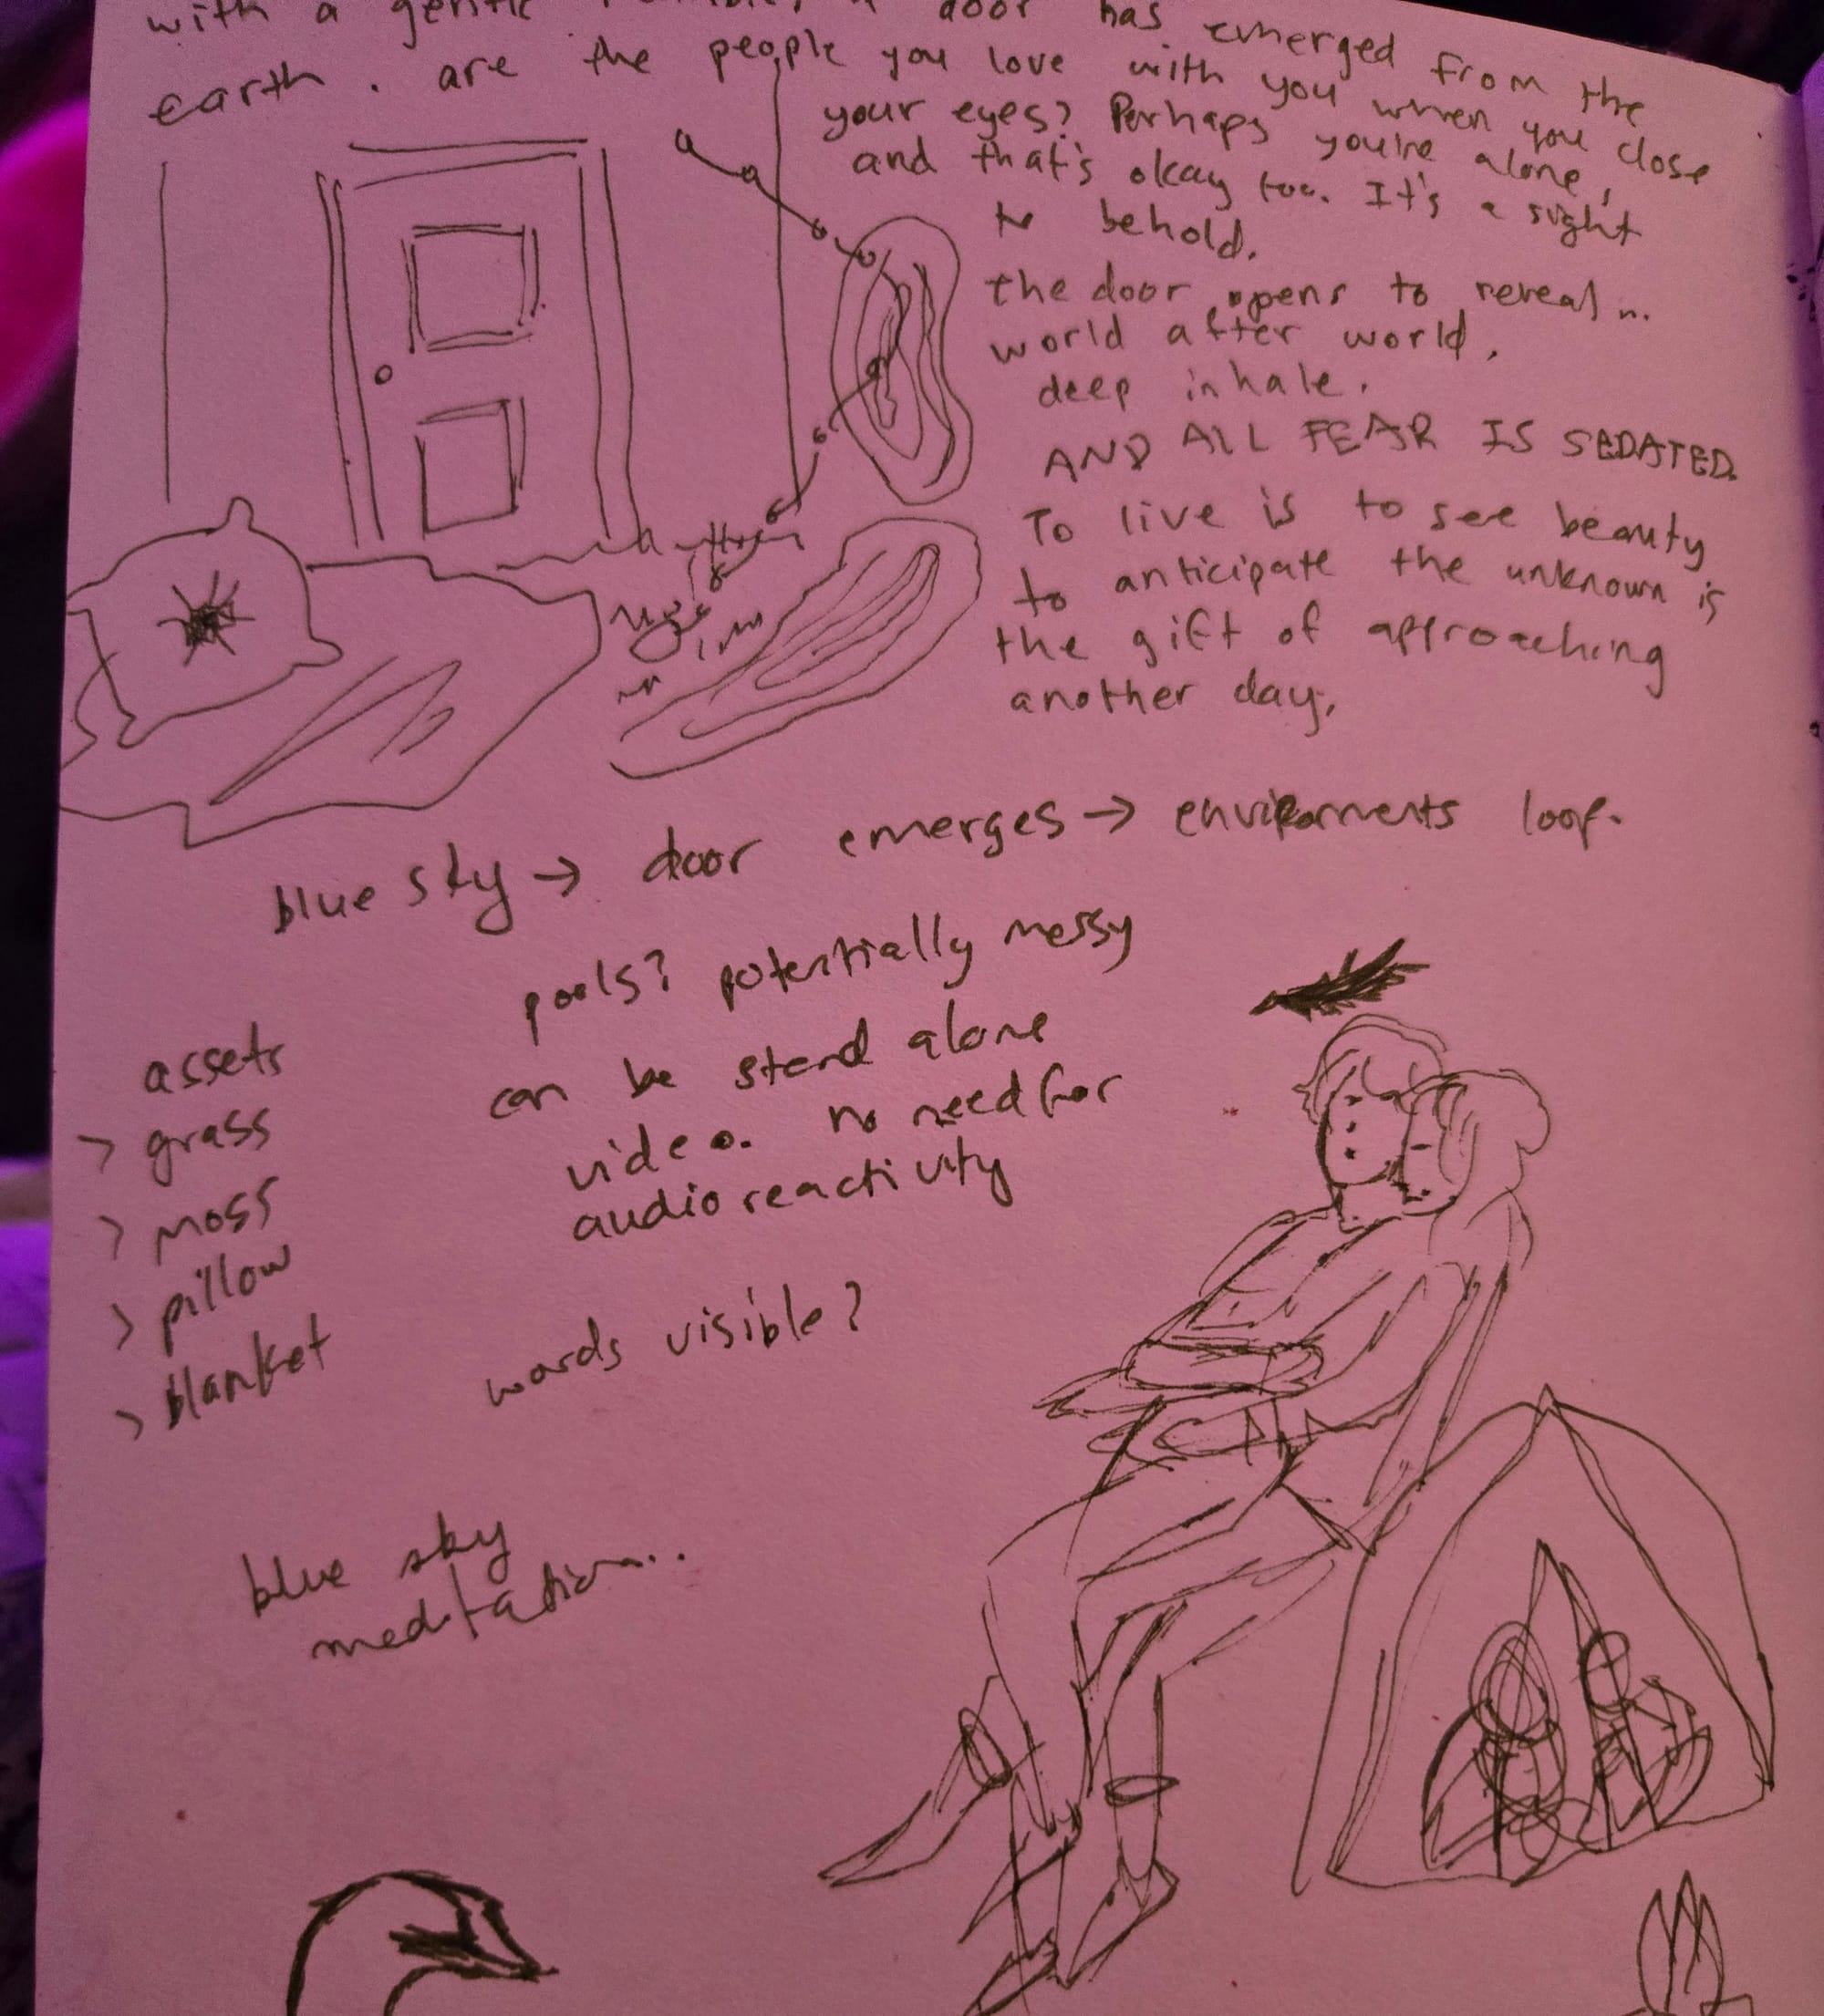 with a gentle rumble, a door has emerged from the
earth. are the people you love with you when you close
your eyes? Perhaps you're alone,
and that's okay too. It's a sight
to behold.
the door opens to reveal...
world after world.
deep inhale.
AND ALL FEAR IS SEDATED.
To live is to see beauty
to anticipate the unknown is
the gift of approaching
another day.
blue sky → door emerges → environments loop.
pools? potentially messy
can be stand alone
video. no need for
audio reactivity
assets
> grass
> moss
> pillow
> blanket
words visible?
blue sky
meditation...